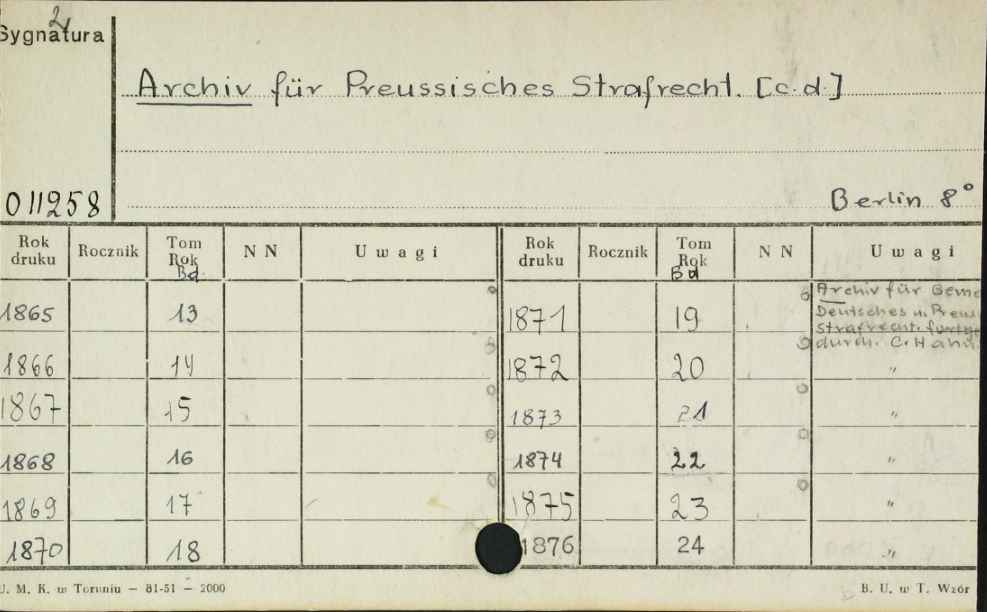 2
Sygnatura
Archiv für Preussisches Strafrecht. [c.d.]
011258
Berlin 8°
Rok druku Rocznik Tom Rok Bd. N N Uwagi Rok druku Rocznik Tom Rok Bd N N Uwagi
1865 13 1871 19 Archiv für Geme
Deutsches u. Preu
Strafrecht.
durch. C. Hahn
1866 14 1872 20 "
1867 15 1873 21 "
1868 16 1874 22 "
1869 17 1875 23 "
1870 18 1876 24 "
U. M. K. w Toruniu — 81-51 — 2000
B. U. w T. Wzór